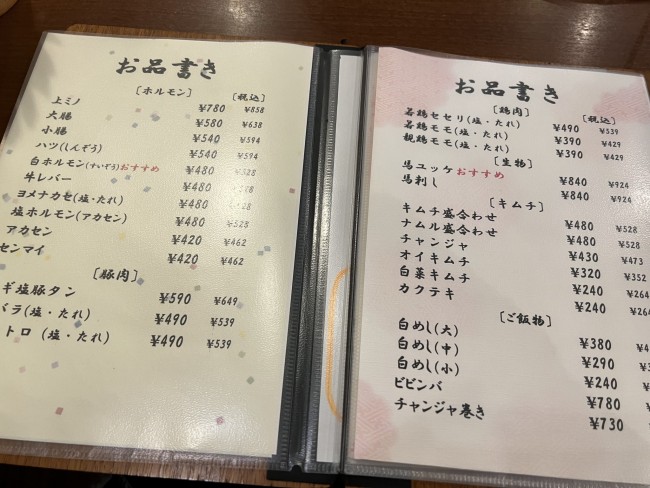 お品書き
[ホルモン] [税込]
上ミノ ¥780 ¥858
大腸 ¥580 ¥638
小腸 ¥540 ¥594
ハツ(しんぞう) ¥540 ¥594
白ホルモン(すいぞう)おすすめ ¥480 ¥528
牛レバー ¥480 ¥528
ヨメナカセ(塩・たれ) ¥480 ¥528
塩ホルモン(アカセン) ¥480 ¥528
アカセン ¥420 ¥462
センマイ ¥420 ¥462
[豚肉]
ギ塩豚タン ¥590 ¥649
バラ(塩・たれ) ¥490 ¥539
トロ(塩・たれ) ¥490 ¥539
お品書き
[鶏肉] [税込]
若鶏セセリ(塩・たれ) ¥490 ¥539
若鶏モモ(塩・たれ) ¥390 ¥429
親鶏モモ(塩・たれ) ¥390 ¥429
[生物]
馬ユッケおすすめ ¥840 ¥924
馬刺し ¥840 ¥924
[キムチ]
キムチ盛合わせ ¥480 ¥528
ナムル盛合わせ ¥480 ¥528
チャンジャ ¥430 ¥473
オイキムチ ¥320 ¥352
白菜キムチ ¥240 ¥264
カクテキ ¥240 ¥264
[ご飯物]
白めし(大) ¥380
白めし(中) ¥290
白めし(小) ¥240
ビビンバ ¥780
チャンジャ巻き ¥730